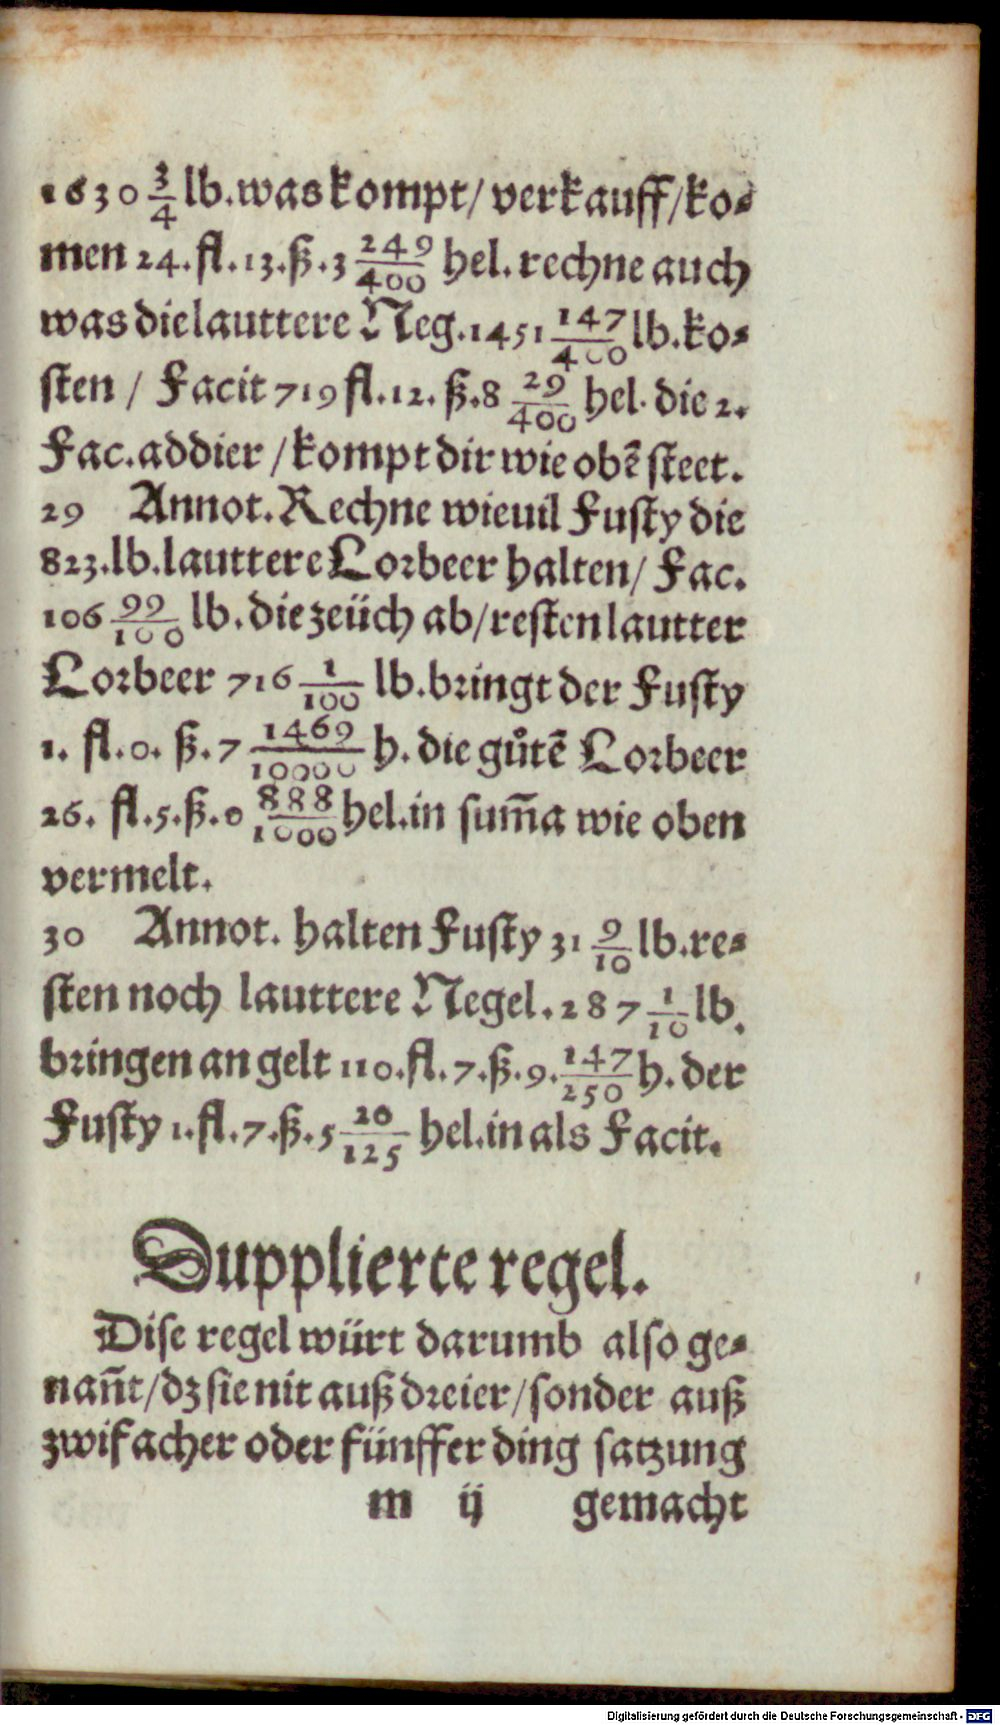 1630 3/4 lb. was kompt/ verkauff/ ko⸗
men 24. fl. 13. ß. 3 249/400 hel. rechne auch
was die lauttere Neg. 1451 147/400 lb. ko⸗
sten / Facit 719 fl. 12. ß. 8 29/400 hel. die 2.
Fac. addier / kompt dir wie obē steet.
29 Annot. Rechne wieuil Fusty die
823. lb. lauttere Lorbeer halten/ Fac.
106 99/100 lb. die zeüch ab/ resten lautter
Lorbeer 716 1/100 lb. bringt der Fusty
1. fl. 0. ß. 7 1469/10000 h. die gůtē Lorbeer
26. fl. 5. ß. 0 888/1000 hel. in sum̄a wie oben
vermelt.
30 Annot. halten Fusty 31 9/10 lb. re⸗
sten noch lauttere Negel. 287 1/10 lb.
bringen an gelt 110. fl. 7. ß. 9. 147/250 h. der
Fusty 1. fl. 7. ß. 5 20/125 hel. in als Facit.
Dupplierte regel.
Dise regel würt darumb also ge⸗
nan̄t/ dz sie nit auß dreier/ sonder auß
zwifacher oder fünffer ding satzung
m ij gemacht
Digitalisierung gefördert durch die Deutsche Forschungsgemeinschaft - DFG